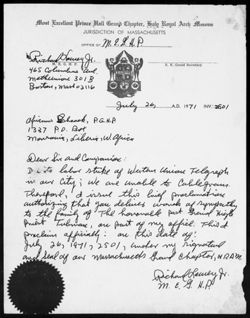 Most Excellent Prince Hall Grand Chapter, Holy Royal Arch Masons
JURISDICTION OF MASSACHUSETTS
OFFICE OF M.E.G.H.P.
Richard Jr.
465 Columbus Ave
301 B
Boston, Mass 02116
R. E. Grand Secretary
July 26, A.D. 1971 INV. 2501
P.G.H.P
1327 P.O. Box
Monrovia, Liberia, W. Africa
Dear Sir and Companion:
Due to labor strike of Western Union Telegraph
in our city; we are unable to Cablegram.
Therefore, I extend this brief proclamation
authorizing that you delivers words of sympathy
to the family of the honorable past Grand High
Priest Tubman, as part of my office. This I
proclaim officially: on this date of:
July 26, 1971, 2501, under my signature
and seal of our Massachusetts Grand Chapter, H.R.A.M.
Richard Jr.
M. E. G. H. P.